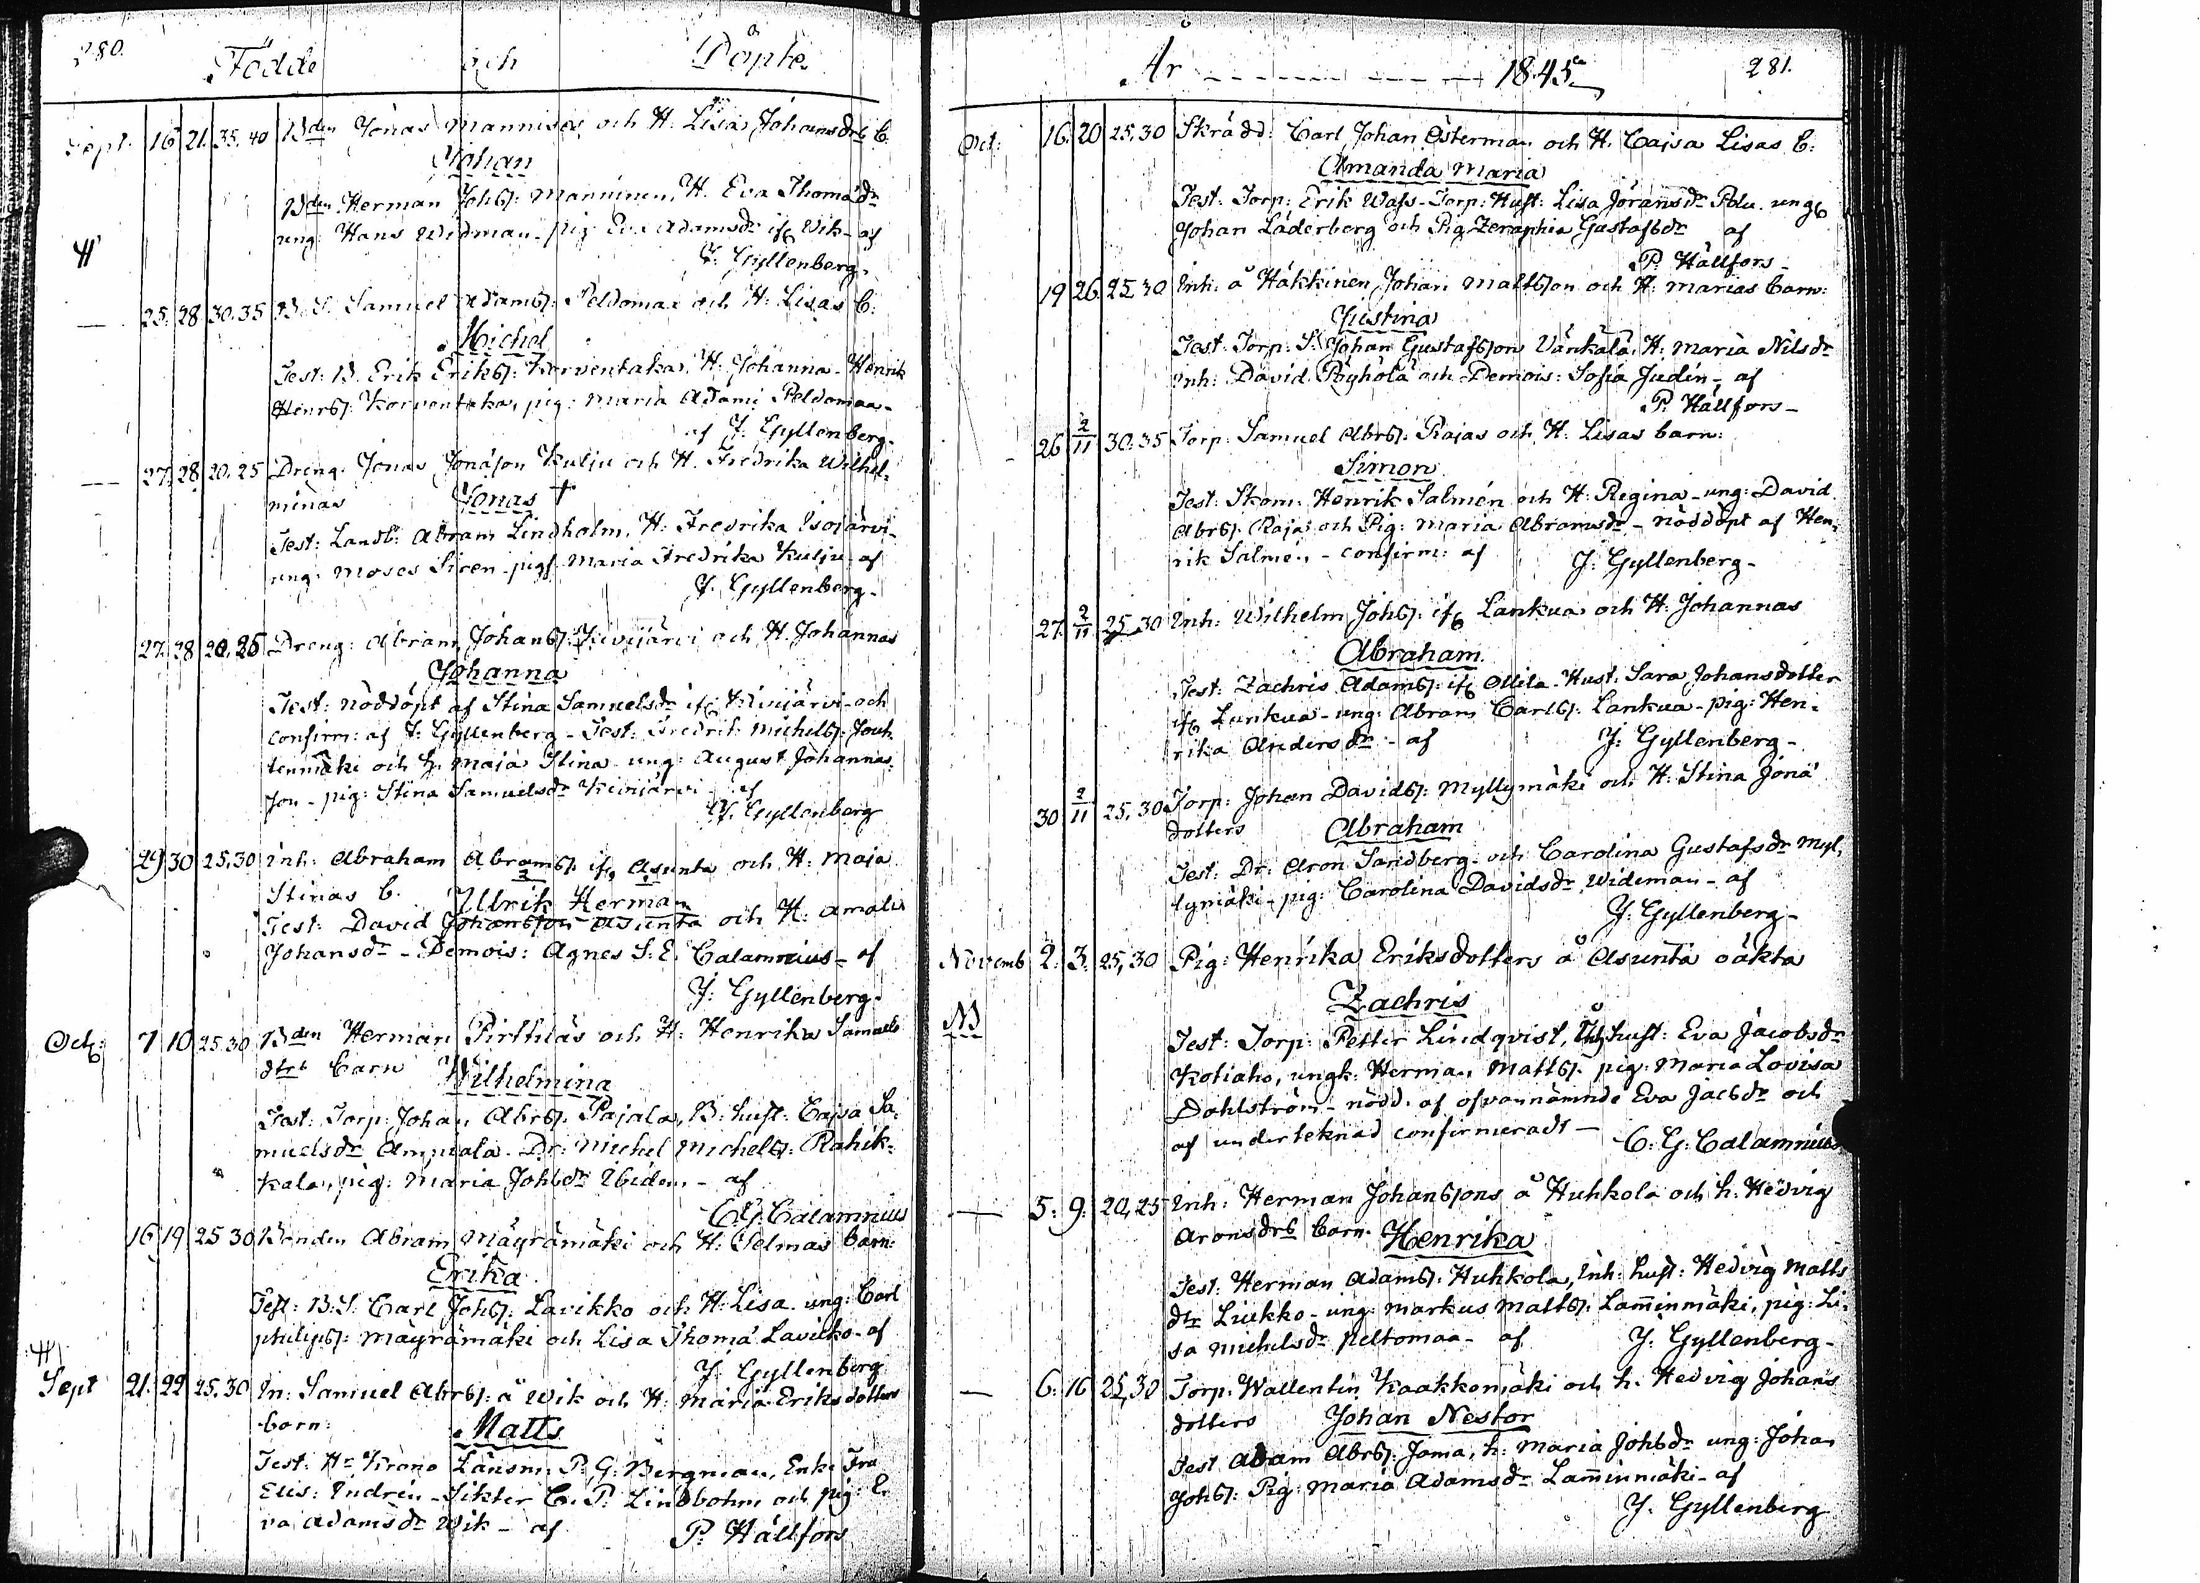 280.
Födde och Döpte
Sept. 16 21. 35. 40 Bden Jonas Mannises och H. Lisa Johansdrs b.
Johan
Bden Herman Johss: Manninen, H. Eva Thomædr
ung: Hans Widman - pig Eva Adamsdr ifr. Wik - af
J. Gyllenberg.
— 25. 28 30. 35 B. S. Samuel Adamss: Peldomaa och H. Lisas b.
Michel
Test: B. Erik Erikss: Korventaka, H. Johanna - Henrik
Henrss: Korventaka, pig: Maria Adami Peldomaa -
af J. Gyllenberg.
— 27. 28. 20. 25 Dreng. Jonas Jonason Kulju och H. Fredrika Wilhel-
minas Jonas †
Test: Landb: Abram Lindholm, H. Fredrika Isojärvi -
ung: Moses Siren - pig Maria Fredrika Kulju - af
J. Gyllenberg -
27. 28 20. 25 Dreng: Abram Johanss: Kivijärvi och H. Johannas
Johanna
Test: nöddöpt af Stina Samuelsdr ifr. Kivijärvi - och
confirm: af J. Gyllenberg - Test: Fredrik Michelss: Jouh-
tenmäki och h. Maja Stina - ung: August Johannas-
son - pig: Stina Samuelsdr Kivijärvi - af
J. Gyllenberg
29 30 25. 30 Inh: Abraham Abramss. ifr. Asunta och H. Maja
Stinas b. Ullrik Herman
Test: David Johansson Asunta och H. Amalia
Johansdr - Demois: Agnes S. E. Calamnius - af
J. Gyllenberg.
Octb: 7 10 25. 30 Bden Herman Pirttilas och H. Henrika Samuels
dtrs barn Wilhelmina
Test: Torp: Johan Abrss. Pajala, B: hust: Cajsa Sa-
muelsdr Ampiala. Dr: Michel Michelss: Rahik-
kala, pig: Maria Johsdr Ibidem - af
C. G. Calamnius
16 19 25 30 Bonden Abram Mäyrämäki och H. Selmas barn:
Erika
Test: B. S. Carl Johss: Lavikko och H: Lisa. ung: Carl
Philipss: Mäyrämäki och Lisa Thomæ Lavikko - af
J. Gyllenberg
Sept 21. 22 25. 30 In: Samuel Abrss: å Wik och H: Maria Eriksdotters
barn: Matts
Test: Hr Krono Länsm. P. G. Bergman, Enke Fru
Elis: Indrén - Sikter C. P. Lindbohm och pig: E-
va Adamsdr Wik - af P. Hällfors
År - - - - - - 1845. 281.
Oct: 16. 20 25. 30 Skrädd: Carl Johan Österman och H. Cajsa Lisas b:
Amanda Maria
Test: Torp: Erik Wass - Torp: Hust: Lisa Göransdr Polu. ungk
Johan Läderberg och Pig Zeraphia Gustafsdr af
P. Hällfors -
19 26. 25 30 Inh: å Häkkinen Johan Mattsson och H: Marias barn:
Justina
Test: Torp: S. Johan Gustafsson Vänkälä, H: Maria Nilsdr
Inh: David Pöyhölä och Demois: Sofia Judin - af
P. Hällfors -
26 2/11 30. 35 Torp: Samuel Abrss. Rajas och H. Lisas barn:
Simon
Test: Skom. Henrik Salmén och H: Regina - ung: David
Abrss. Raja och Pig: Maria Abramsdr - nöddöpt af Hen-
rik Salmén - confirm: af J: Gyllenberg -
27. 2/11 25. 30 Inh: Wilhelm Johss. ifr Lankua och H: Johannas
Abraham
Test: Zachris Adamss: ifr Ollila - Hust: Sara Johansdotter
ifr Lankua - ung: Abram Carlss: Lankua - pig: Hen-
rika Andersdr - af J: Gyllenberg -
30 2/11 25. 30 Torp: Johan Davidss: Myllymäki och H. Stina Jonæ
dotters Abraham
Test: Dr: Aron Sandberg - och Carolina Gustafsdr Myl-
lymäki - pig: Carolina Davidsdr Wideman - af
J: Gyllenberg -
Novemb 2. 3. 25, 30 Pig: Henrika Eriksdotters å Asunta oäkta
NB Zachris
Test: Torp: Petter Lindqvist, hust: Eva Jacobsdr
Kotiaho, ungk: Herman Mattss. pig: Maria Lovisa
Dahlström - nödd. af ofvannämnde Eva Jacsdr och
af undertecknad confirmeradt - C: G: Calamnius
— 5: 9: 20, 25 Inh: Herman Johanssons å Huhkola och h: Hedvig
Aronsdrs barn. Henrika
Test: Herman Adamss: Huhkola, Inh: hust: Hedvig Matts
dtr Liukko - ung: Markus Mattss: Lam̄inmäki, pig: Li-
sa Michelsdr Peltomaa - af J: Gyllenberg -
— 6: 16 25, 30 Torp. Wallentin Kaakkomäki och h. Hedvig Johans
dotters Johan Nestor
Test Adam Abrss: Joma, h: Maria Johsdr ung: Johan
Johss: Pig: Maria Adamsdr Lam̄inmäki - af
J. Gyllenberg